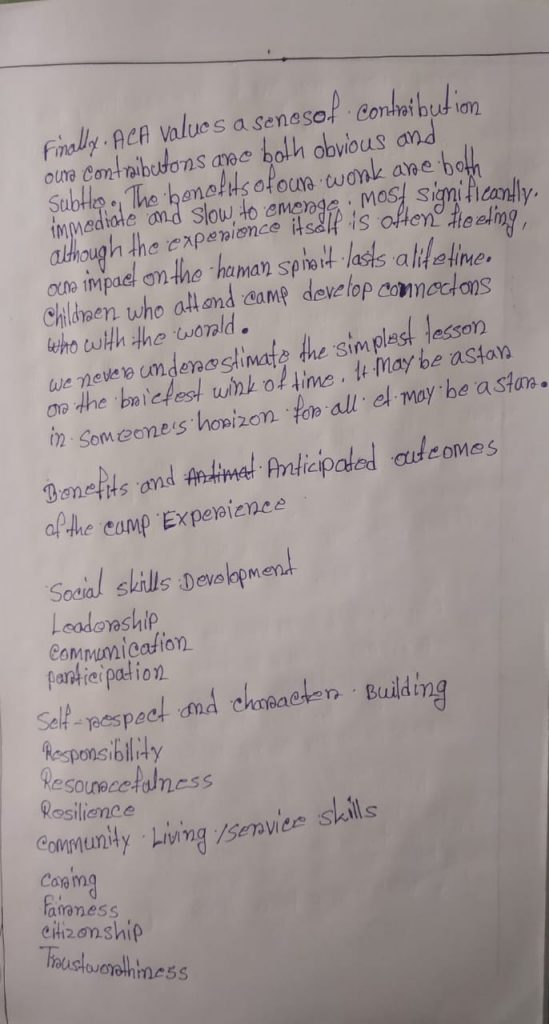 Finally. ACA values a senesof contribution
our contributons are both obvious and
Subtle. The benefits ofour work are both
immediate and slow to emerge. most significantly.
although the experience itself is often fleeting,
our impact on the human spirit lasts a lifetime.
Children who attend camp develop connectons
who with the world.
we never underestimate the simplest lesson
or the briefest wink of time. It may be a star
in someone's horizon for all et may be a star.
Benefits and Anticipated outcomes
of the camp Experience
Social skills Development
Leadership
communication
participation
Self-respect and character Building
Responsibility
Resourcefulness
Resilience
community Living/service skills
Caring
fairness
citizenship
Trustworthiness